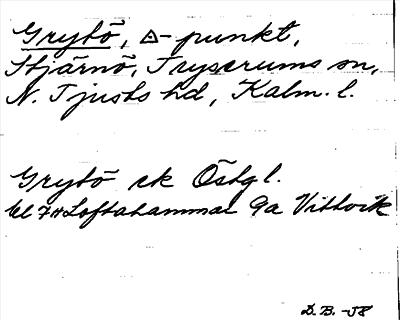 Grytö, △-punkt,
Stjärnö, Tryserums sn,
N. Tjusts hd, Kalm. l.
Grytö ek Östgl.
bl 7H Loftahammar 9a Vittvik
D.B. -58